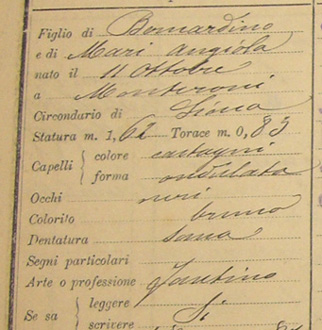 Figlio di Bernardino
e di Mari Angiola
nato il 11 Ottobre
a Monteroni
Circondario di Siena
Statura m. 1,62 Torace m. 0,83
Capelli { colore castagni
forma ondulata
Occhi neri
Colorito bruno
Dentatura sana
Segni particolari
Arte o professione Fantino
Se sa { leggere Sì
scrivere